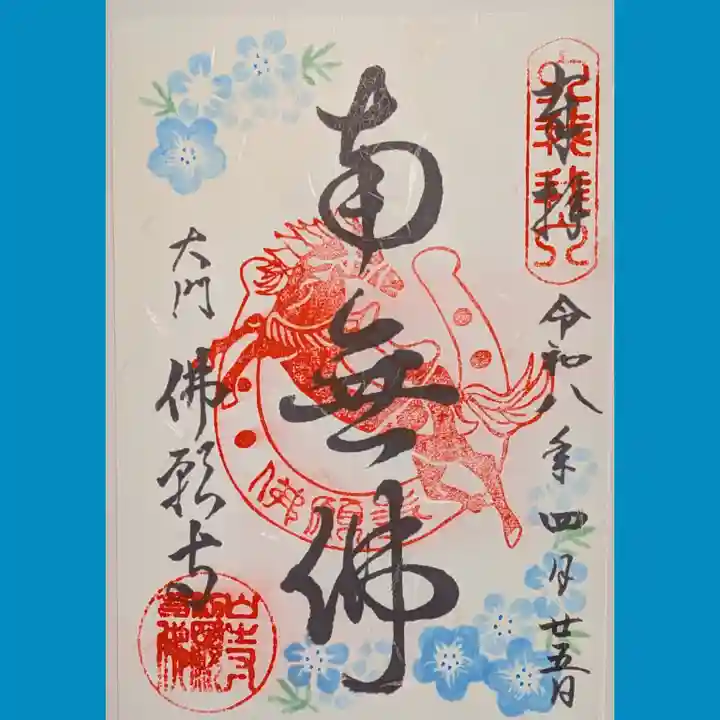 奉拝
令和八年四月廿五日
南無佛
佛願寺
大門 佛願寺